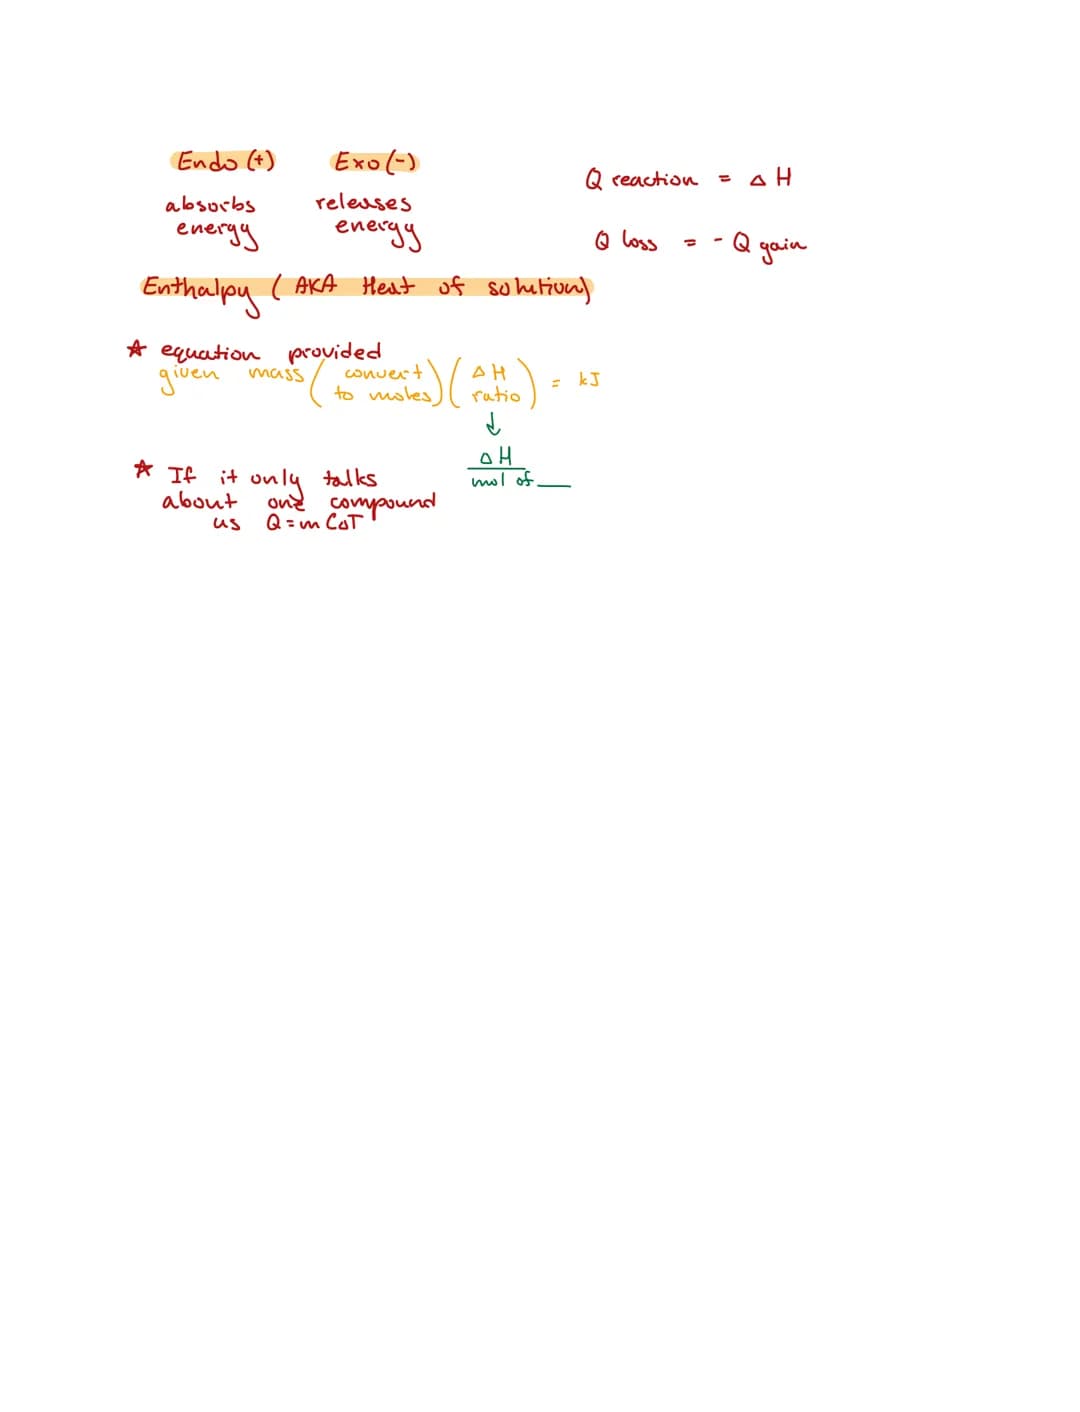 Endo (+) Exo (-)
absorbs energy
releases energy
Q reaction = Δ H
Q loss = - Q gain
Enthalpy ( AKA Heat of solution)
☆ equation provided
given mass ( convert to moles ) ( Δ H ratio ) = kJ
↓
Δ H
mol of __
☆ If it only talks
about one compound
us Q = m CΔT